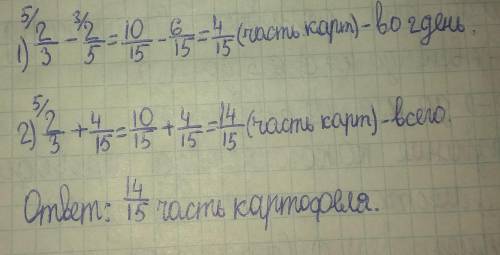 1) ⁵⁄2/3 - ³⁄2/5 = 10/15 - 6/15 = 4/15 (часть карт) - во 2 день.
2) ⁵⁄2/3 + 4/15 = 10/15 + 4/15 = 14/15 (часть карт) - всего.
Ответ: 14/15 часть картофеля.